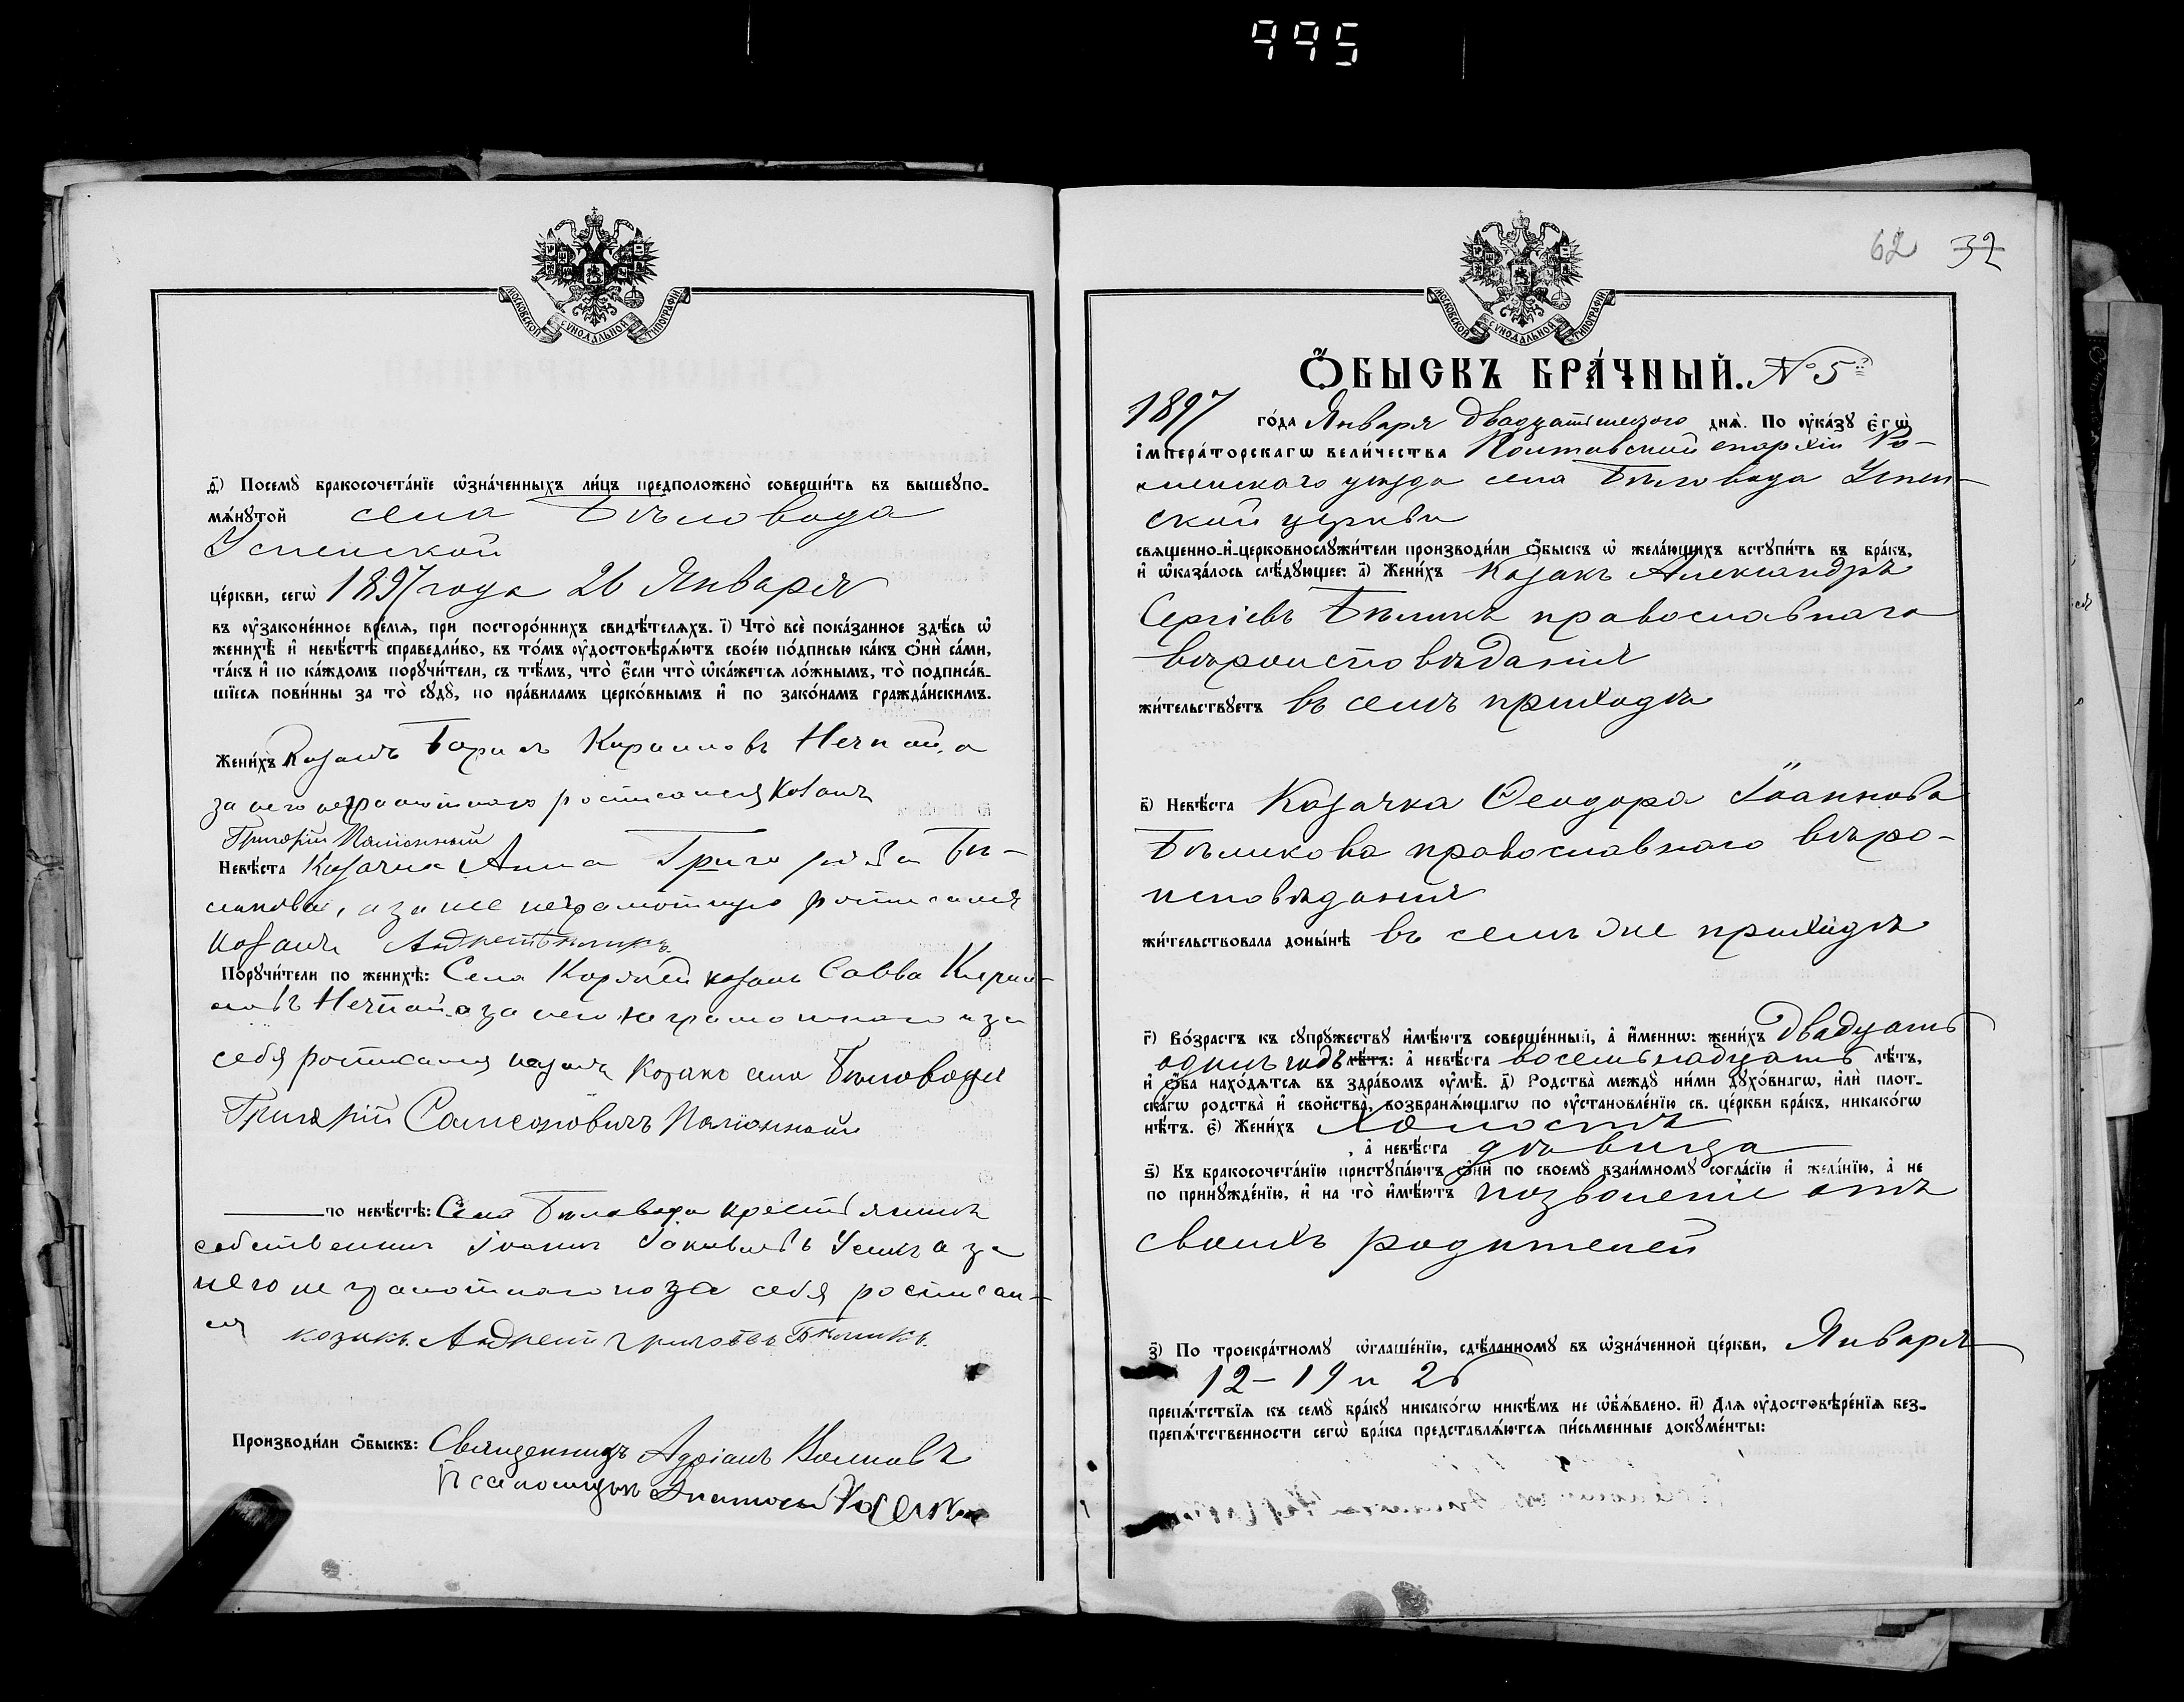 995
МОСКОВСКОЙ СѴНОДАЛЬНОЙ ТИПОГРАФІИ
д҃) Посемꙋ̀ бракосочета́нїе ѡ҆зна́ченныхъ ли́цъ предположено̀ соверши́ть въ вышеꙋпо-
мѧ́нꙋтой села Бѣловода
Успенской
це́ркви, сегѡ̀ 1897 года 26 Января
въ ᲂу҆законе́нное вре́мѧ, при посторо́ннихъ свидѣ́телѧхъ. і҃) Что̀ всѐ пока́занное здѣ́сь ѡ҆
женихѣ̀ и҆ невѣ́стѣ справедли́во, въ то́мъ ᲂу҆достовѣрѧ́ютъ свое́ю по́дписью ка́къ ѻ҆нѝ са́ми,
та́къ и҆ по ка́ждомъ порꙋчи́тели, съ тѣ́мъ, что̀ є҆́сли что̀ ѡ҆ка́жетсѧ ло́жнымъ, то̀ подписа́в-
шїесѧ пови́нны за то̀ сꙋдꙋ̀, по пра́виламъ церко́внымъ и҆ по зако́намъ гражда́нскимъ.
Жени́хъ Козакъ Кириловъ Нечпай, а
за него неграмотного росписался Козакъ
Григорій
Невѣ́ста Козачка Анна Григорієва Бѣ-
ликова, а за нее неграмотную росписался
козакъ Андрей Бѣликъ
Порꙋчи́тели по женихѣ̀: Села козакъ Савва Кири-
ловъ Нечпай а за него неграмотного и за
себя росписался козакъ села Бѣловода
Григорій Самсоновичъ
по невѣ́стѣ: Села Бѣловода крестьянинъ
собственникъ Іоанъ Усикъ а за
него не грамотного и за себя росписал-
ся козакъ Андрей Бѣликъ.
Производи́ли ѻ҆́быскъ: Священникъ Адріанъ
Псаломщикъ
62 32
МОСКОВСКОЙ СѴНОДАЛЬНОЙ ТИПОГРАФІИ
Ѻ҆́БЫСКЪ БРА́ЧНЫЙ. № 5й
1897 го́да Января двадцатьшестого днѧ̀. По ᲂу҆ка́зꙋ Є҆гѡ̀
і҆мпера́торскагѡ вели́чества Полтавской епархіи Ро-
менскаго уѣзда села Бѣловода Успен-
ской церкви
свѧщенно-и҆-церковнослꙋжи́тели производи́ли ѻ҆́быскъ ѡ҆ жела́ющихъ встꙋпи́ть въ бра́къ,
и҆ ѡ҆каза́лось слѣ́дꙋющее: а҃) Жени́хъ Козакъ Александръ
Сергіевъ Бѣликъ православнаго
вѣроисповѣданія
жи́тельствꙋетъ въ семъ приходѣ
в҃) Невѣ́ста Козачка Ѳеодора Іоаннова
Бѣликова православнаго вѣро-
исповѣданія
жи́тельствовала доны́нѣ въ семъ же приходѣ
г҃) Во́зрастъ къ сꙋпрꙋ́жествꙋ и҆мѣ́ютъ соверше́нный, а҆ и҆́менно: жени́хъ двадцать
одинъ годъ лѣ́тъ: а҆ невѣ́ста восемьнадцать лѣ́тъ,
и҆ ѻ҆́ба нахо́дѧтсѧ въ здра́вомъ ᲂу҆мѣ̀. д҃) Родства̀ междꙋ̀ ни́ми дꙋхо́внагѡ, и҆лѝ плот-
ска́гѡ родства̀ и҆ свойства̀, возбранѧ́ющагѡ по ᲂу҆становле́нїю св. це́ркви бра́къ, никако́гѡ
нѣ́тъ. є҃) Жени́хъ холостъ
, а҆ невѣ́ста дѣвица
ѕ҃) Къ бракосочета́нїю пристꙋпа́ютъ ѻ҆нѝ по своемꙋ̀ взаи́мномꙋ согла́сїю и҆ жела́нїю, а҆ не
по принꙋжде́нїю, и҆ на то̀ и҆мѣ́ютъ позволеніе отъ
своихъ родителей
з҃) По троекра́тномꙋ ѡ҆глаше́нїю, сдѣ́ланномꙋ въ ѡ҆зна́ченной це́ркви, Января
12 – 19 и 26
препѧ́тствїѧ къ семꙋ̀ бра́кꙋ никако́гѡ никѣ́мъ не ѡ҆б̾ѧ́влено. и҃) Длѧ ᲂу҆достовѣре́нїѧ без-
препѧ́тственности сегѡ̀ бра́ка представлѧ́ютсѧ пи́сьменные докꙋме́нты: